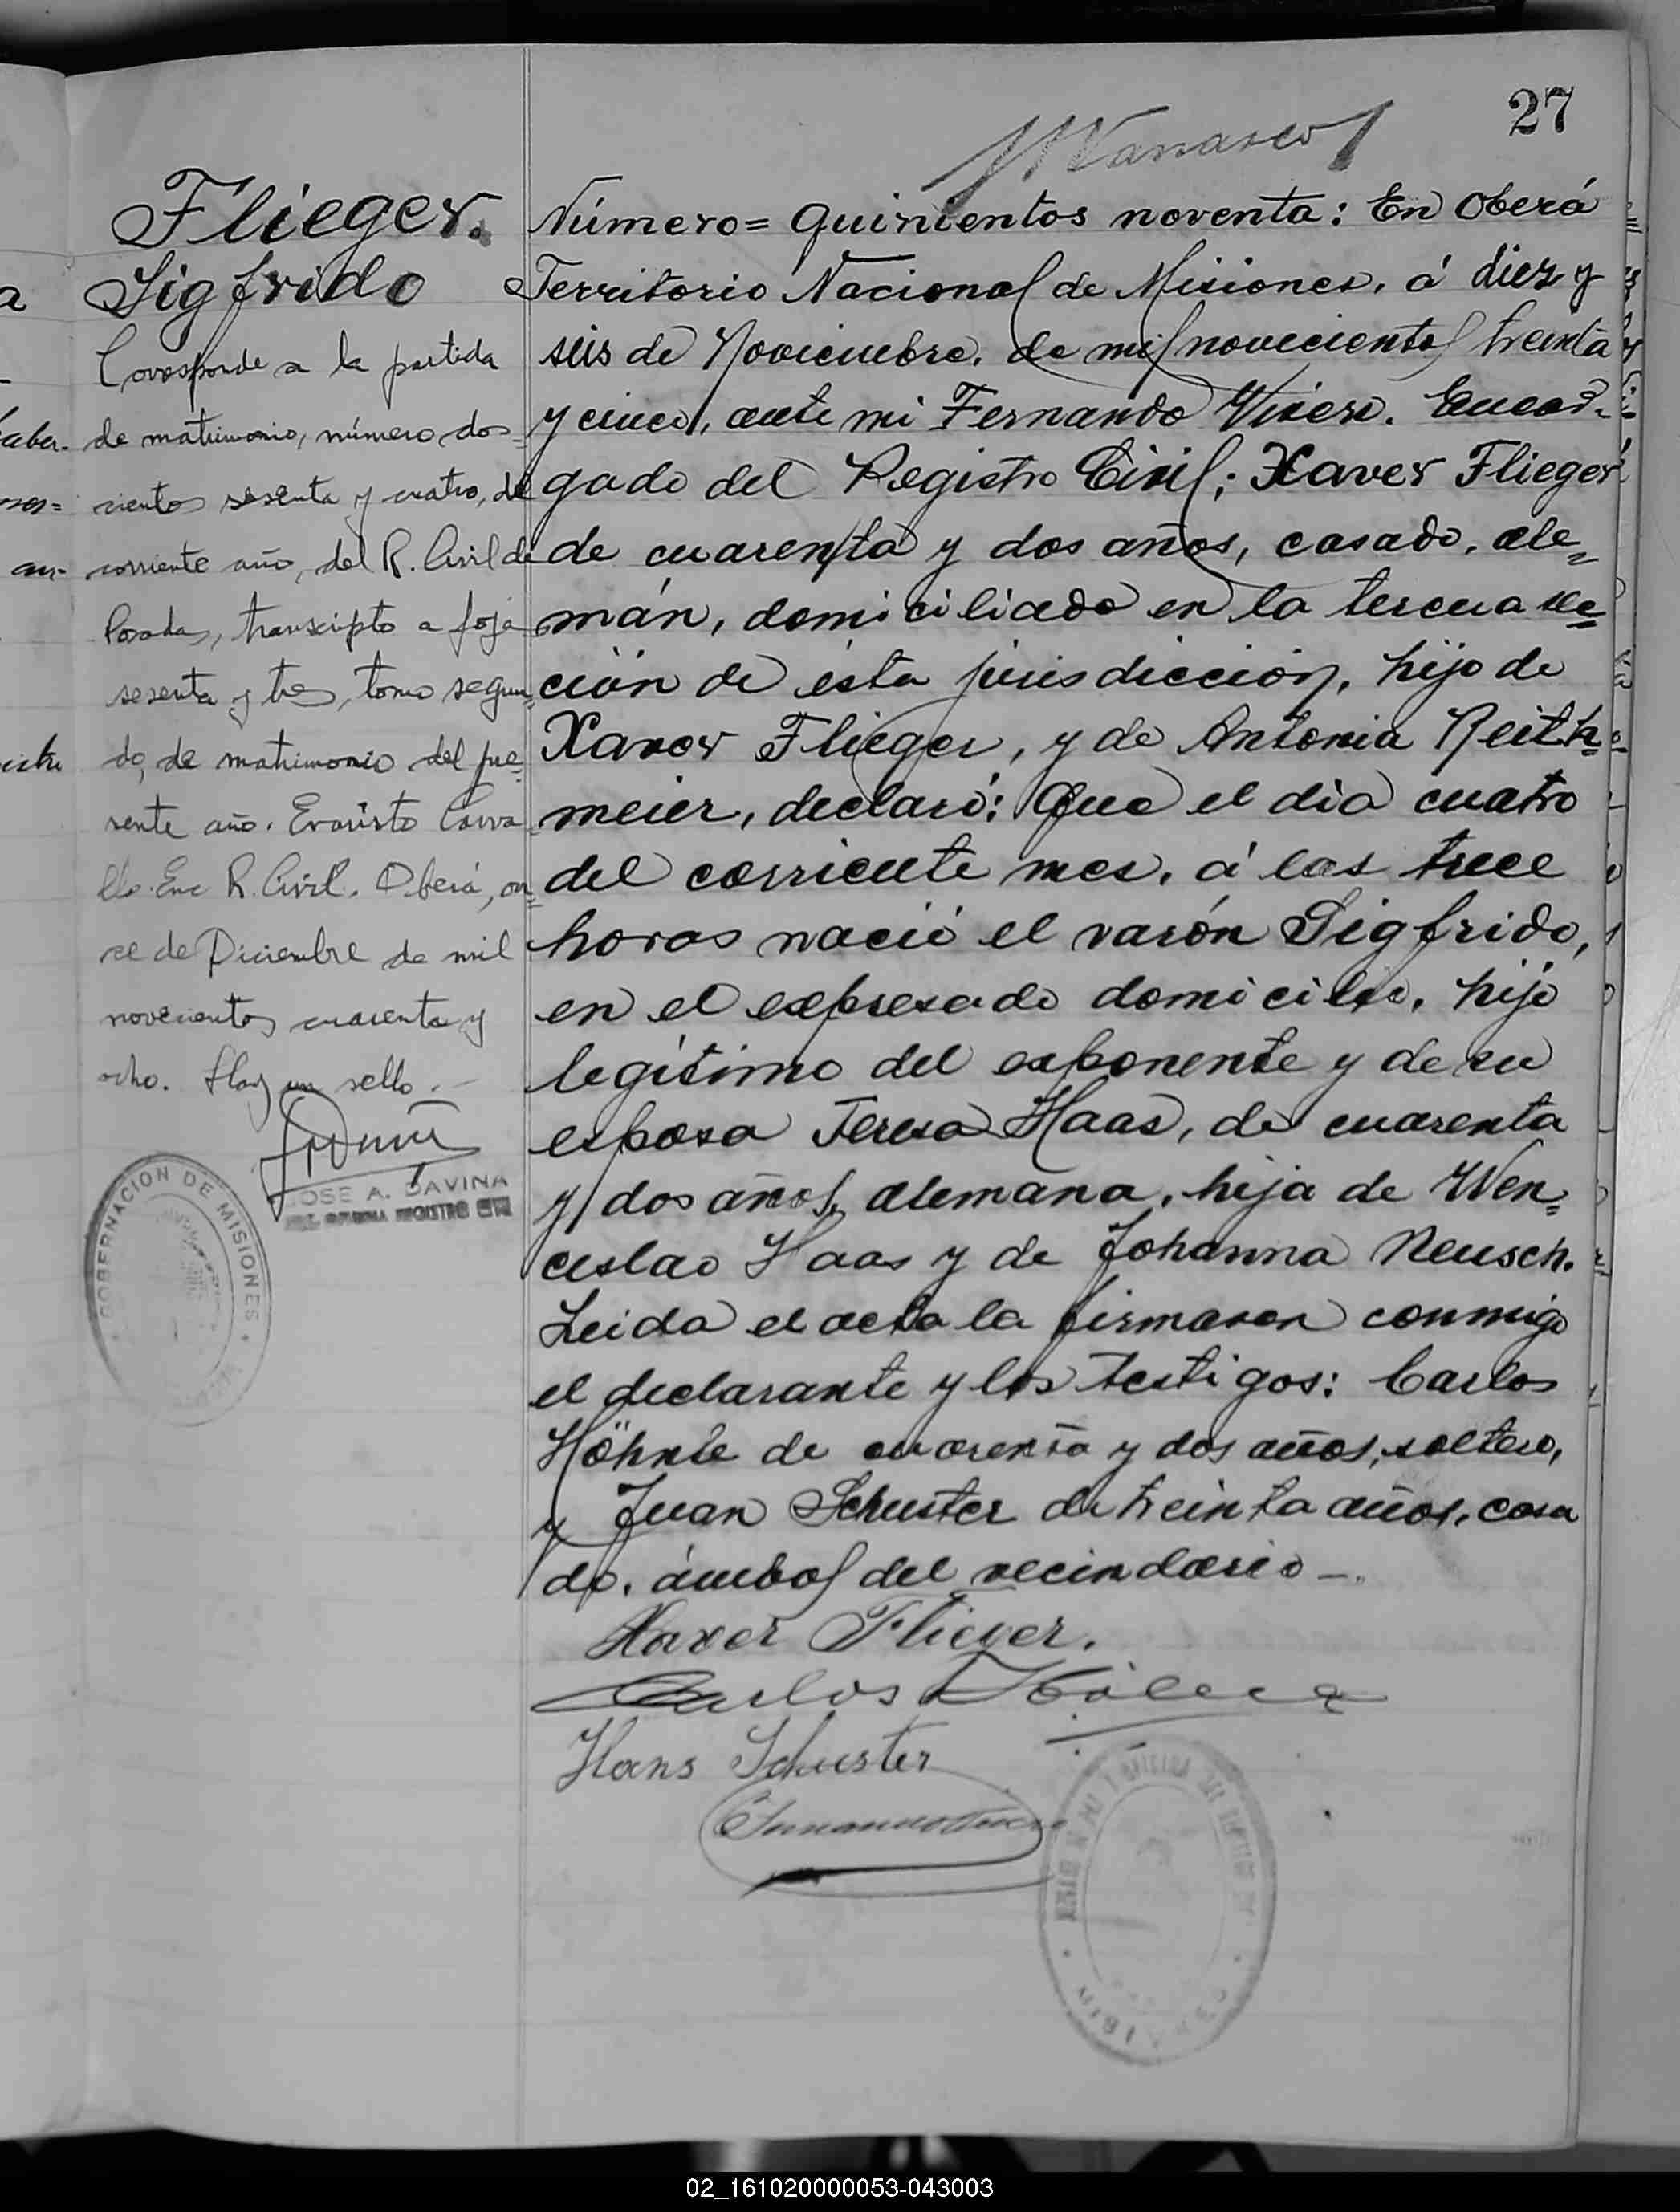 27
Flieger.
Sigfrido
Corresponde a la partida
de matrimonio, número dos=
cientos sesenta y cuatro, del
corriente año, del R. Civil de
Posadas, transcripto a foja
sesenta y tres, tomo segun=
do, de matrimonio del pre=
sente año. Evaristo Carva
llo. Enc R. Civil. Oberá, on=
ce de Diciembre de mil
novecientos cuarenta y
ocho. Hay un sello.-
JOSE A. DAVINA
REGISTRO
GOBERNACION DE MISIONES
Número= Quinientos noventa: En Oberá
Territorio Nacional de Misiones, á diez y
seis de Noviembre, de mil novecientos treinta
y cinco, ante mi Fernando Vivero. Encar-
gado del Registro Civil; Xaver Flieger
de cuarenta y dos años, casado, ale=
mán, domiciliado en la tercera sec=
ción de ésta jurisdicción, hijo de
Xaver Flieger, y de Antonia Reith=
meier, declaró: Que el día cuatro
del corriente mes, á las trece
horas nació el varón Sigfrido,
en el expresado domicilio, hijo
legítimo del exponente y de su
esposa Teresa Haas, de cuarenta
y dos años, alemana, hija de Wen=
ceslao Haas y de Johanna Neusch.
Leida el acta la firmaron conmigo
el declarante y los testigos: Carlos
Höhnle de cuarenta y dos años, soltero,
y Juan Schuster de treinta años, casa
do, ámbos del vecindario-.
Xaver Flieger.
Carlos
Hans Schuster
02_161020000053-043003